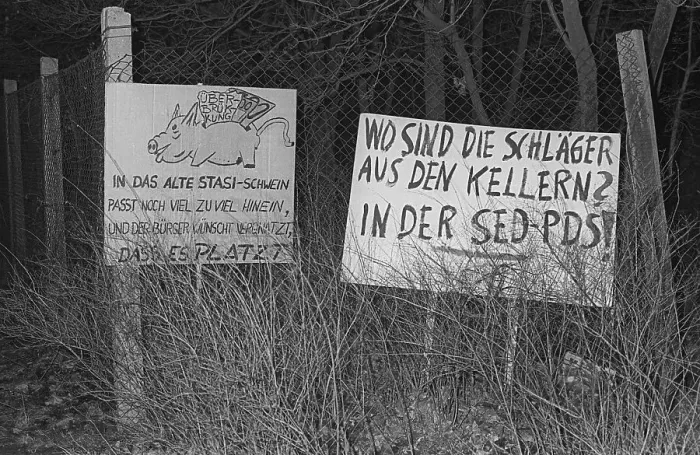 ÜBER-
BRÜK-
KUNG
IN DAS ALTE STASI-SCHWEIN
PASST NOCH VIEL ZU VIEL HINEIN,
UND DER BÜRGER WÜNSCHT
DASS ES PLATZT
WO SIND DIE SCHLÄGER
AUS DEN KELLERN?
IN DER SED-PDS!